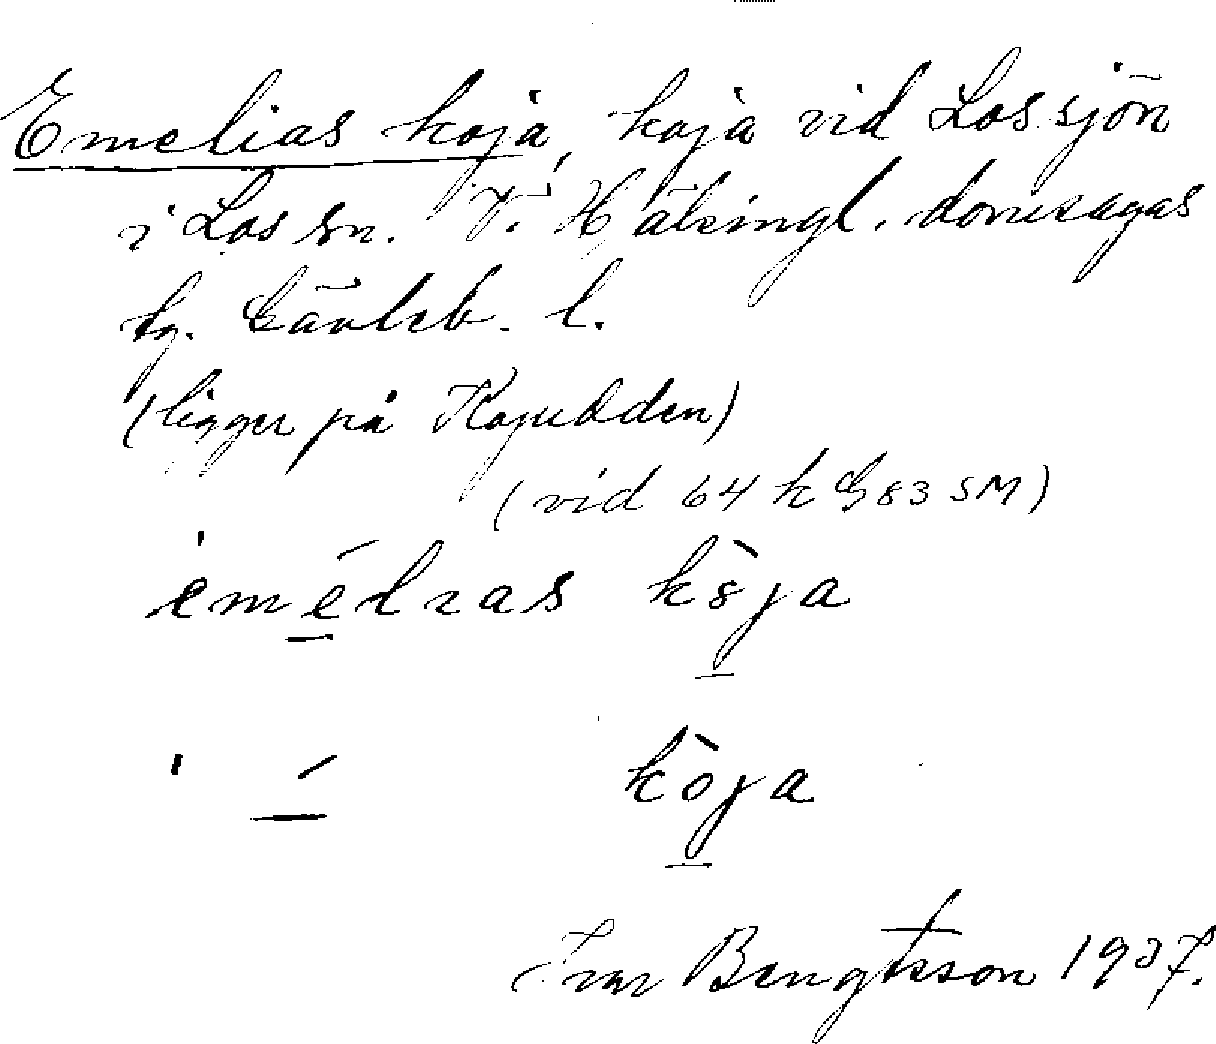 Emelias koja, koja vid Lossjön
i Los sn. V. Hälsingl. domsagas
tg. Gävleb. l.
(ligger på Kojudden)
(vid 64 k G 83 SM)
emélɩas kòja
kòja
Ivar Bengtsson 1937.